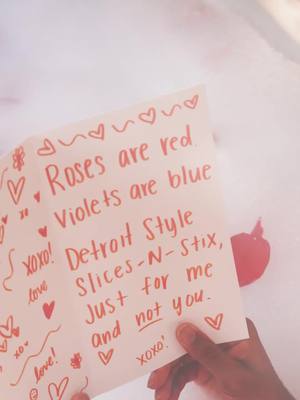 Roses are red
Violets are blue
Detroit Style
Slices-N-Stix,
Just for me
and not you.
xoxo!
xo
xoxo!
love
xo
love!